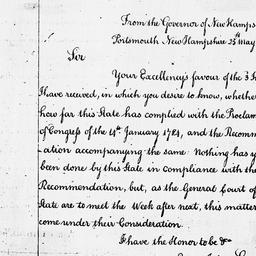 From the Governor of New Hamps
Portsmouth New Hampshire 25th May
Sir
Your Excellency's favour of the 3
I have received, in which you desire to know, whethe
how far this State has complied with the Proclam
of Congress of the 14th January 1784, and the Recomm
-ation accompanying the same. Nothing has y
been done by this State in compliance with the
Recommendation, but, as the General Court of
State are to meet the Week after next, this matter
come under their Consideration.
I have the Honor to be &c